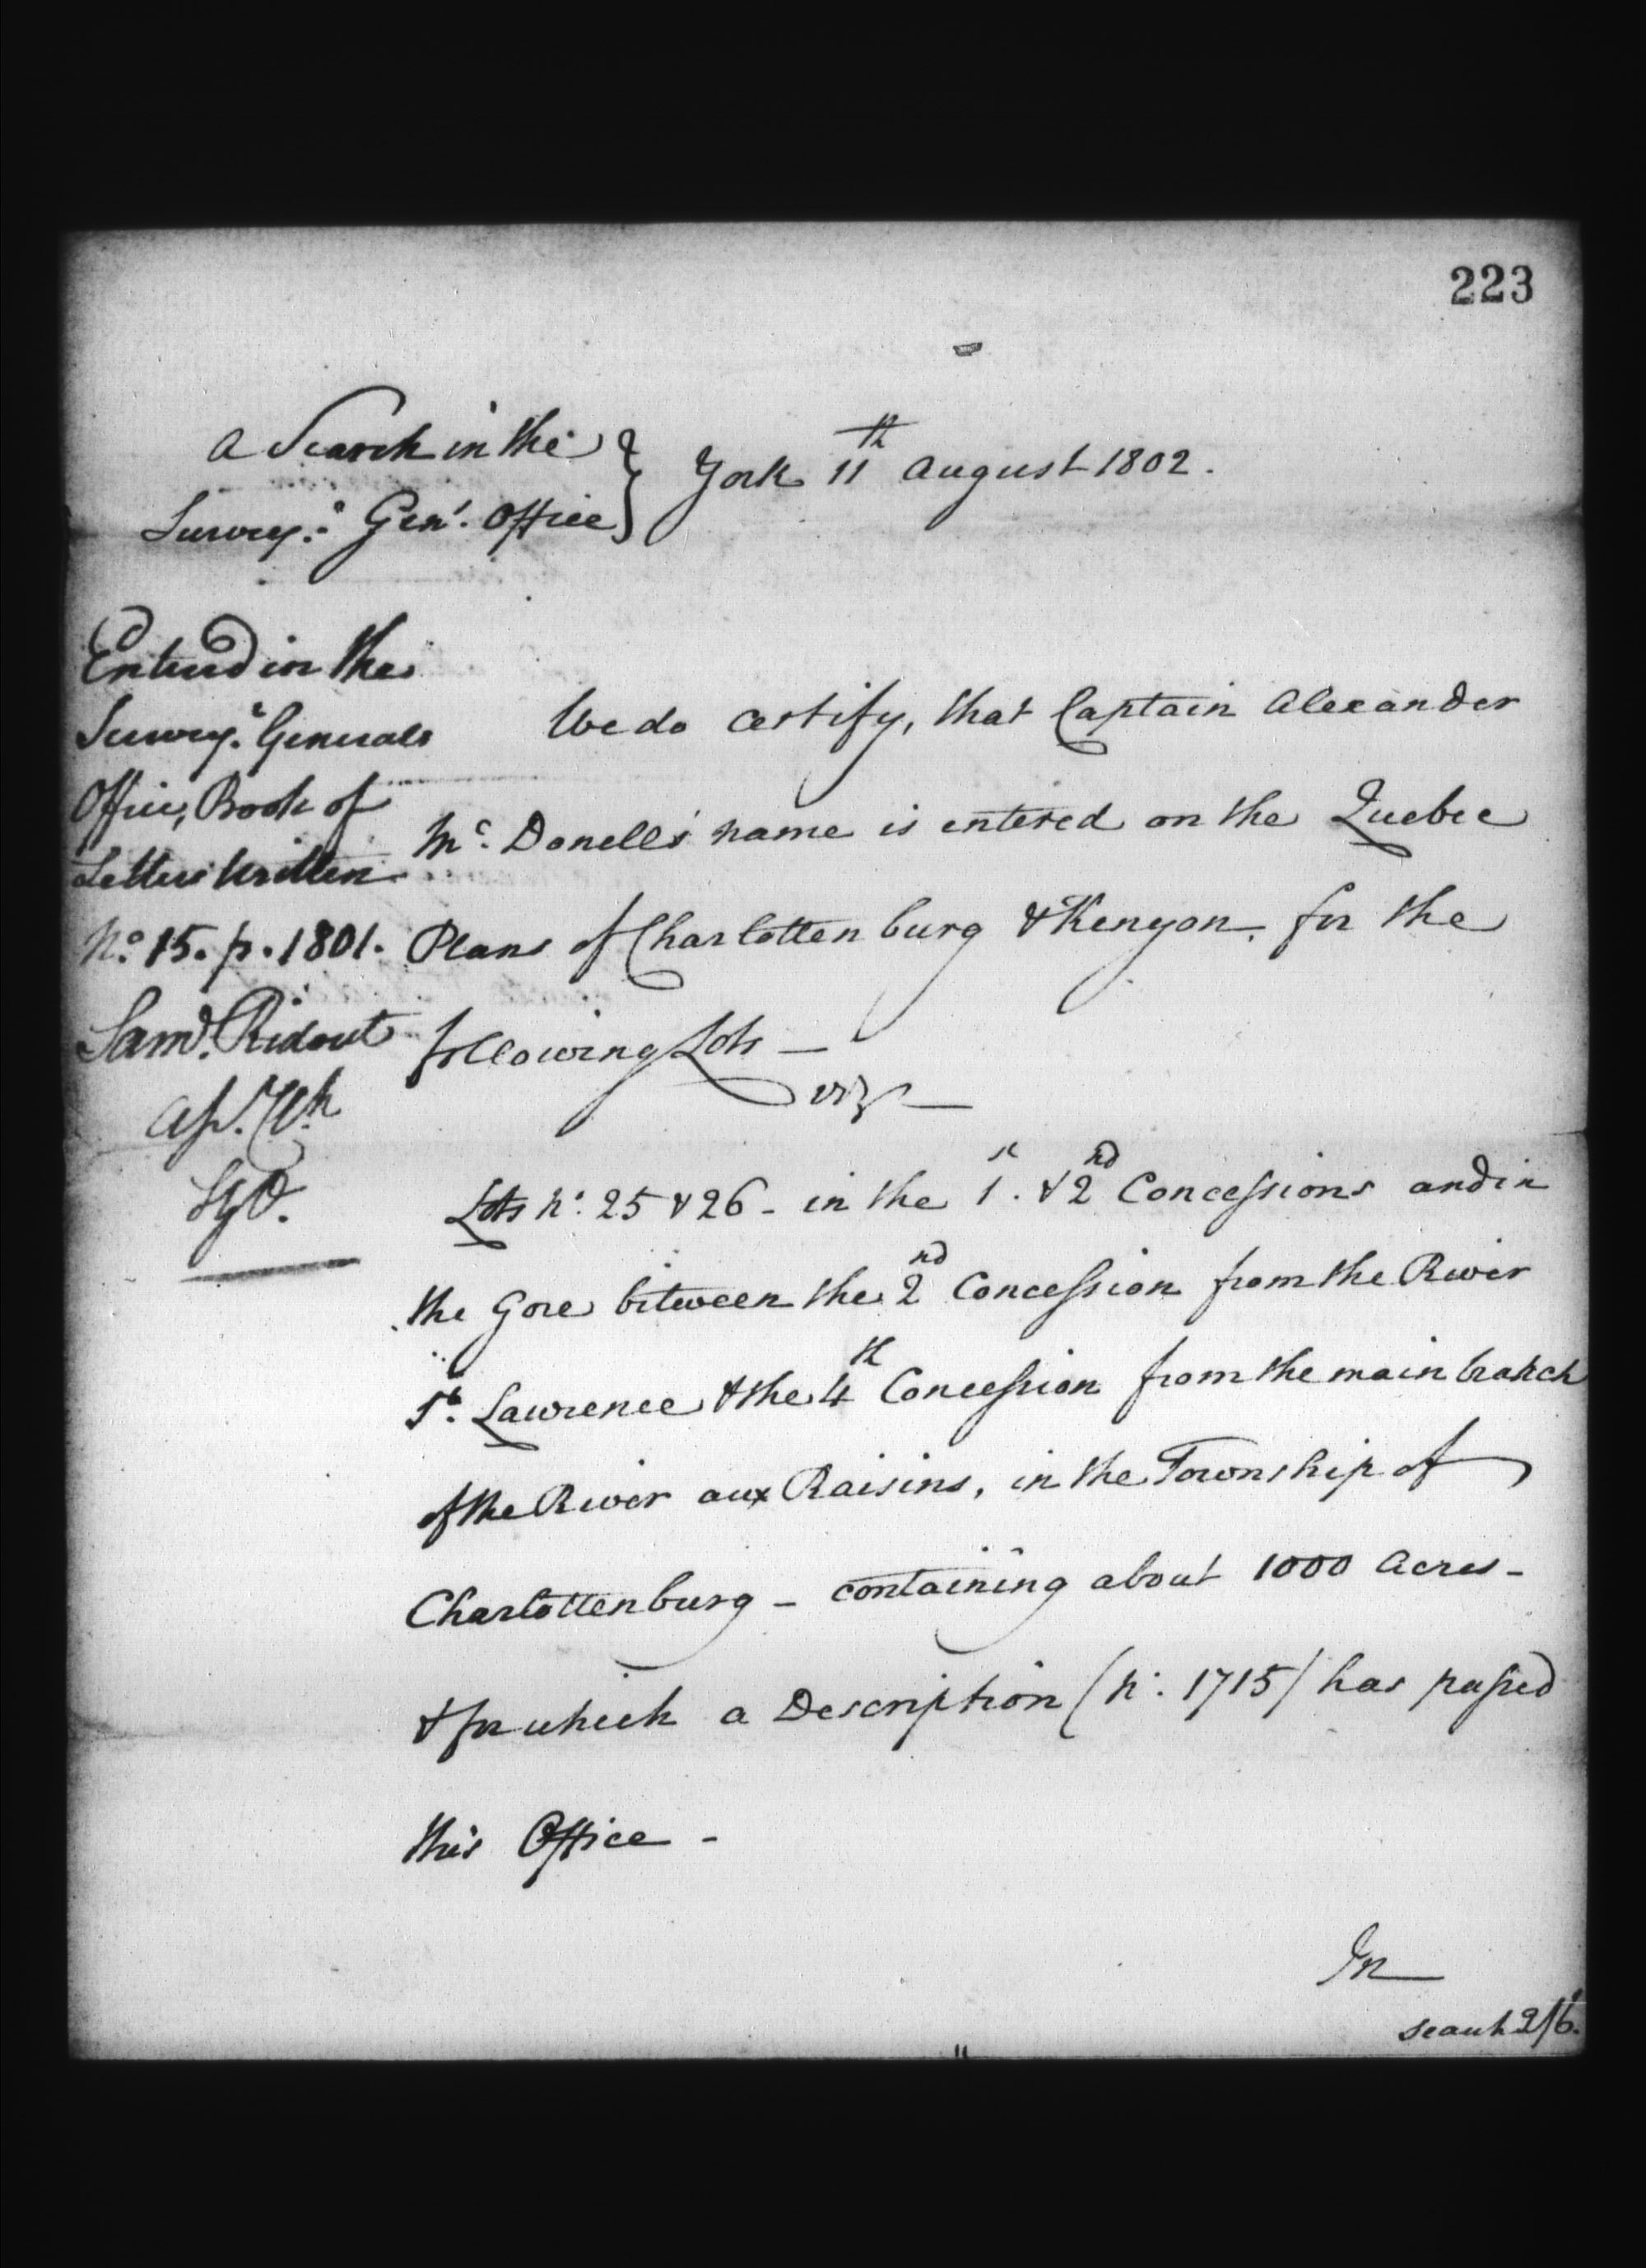 223
A Search in the } York 11th August 1802.
Survey.r Gen.l Office
Entered in the
Survey.r Generals
Office, Book of
Letters Written
No. 15. p. 1801.
Sam.l Ridout
We do certify, that Captain Alexander
Mc. Donell's name is entered on the Quebec
Plans of Charlottenburg & Kenyon, for the
following Lots —
viz —
Lots No. 25 & 26 - in the 1st. & 2nd Concessions and in
the Gore between the 2nd Concession from the River
St. Lawrence & the 4th Concession from the main branch
of the River aux Raisins, in the Township of
Charlottenburg - containing about 1000 Acres -
& for which a Description (No. 1715) has passed
this Office -
In
search 2/6.